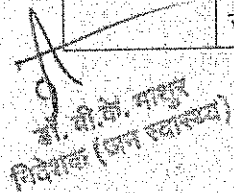 डॉ. वी.के. माथुर
निदेशक (जन स्वास्थ्य)